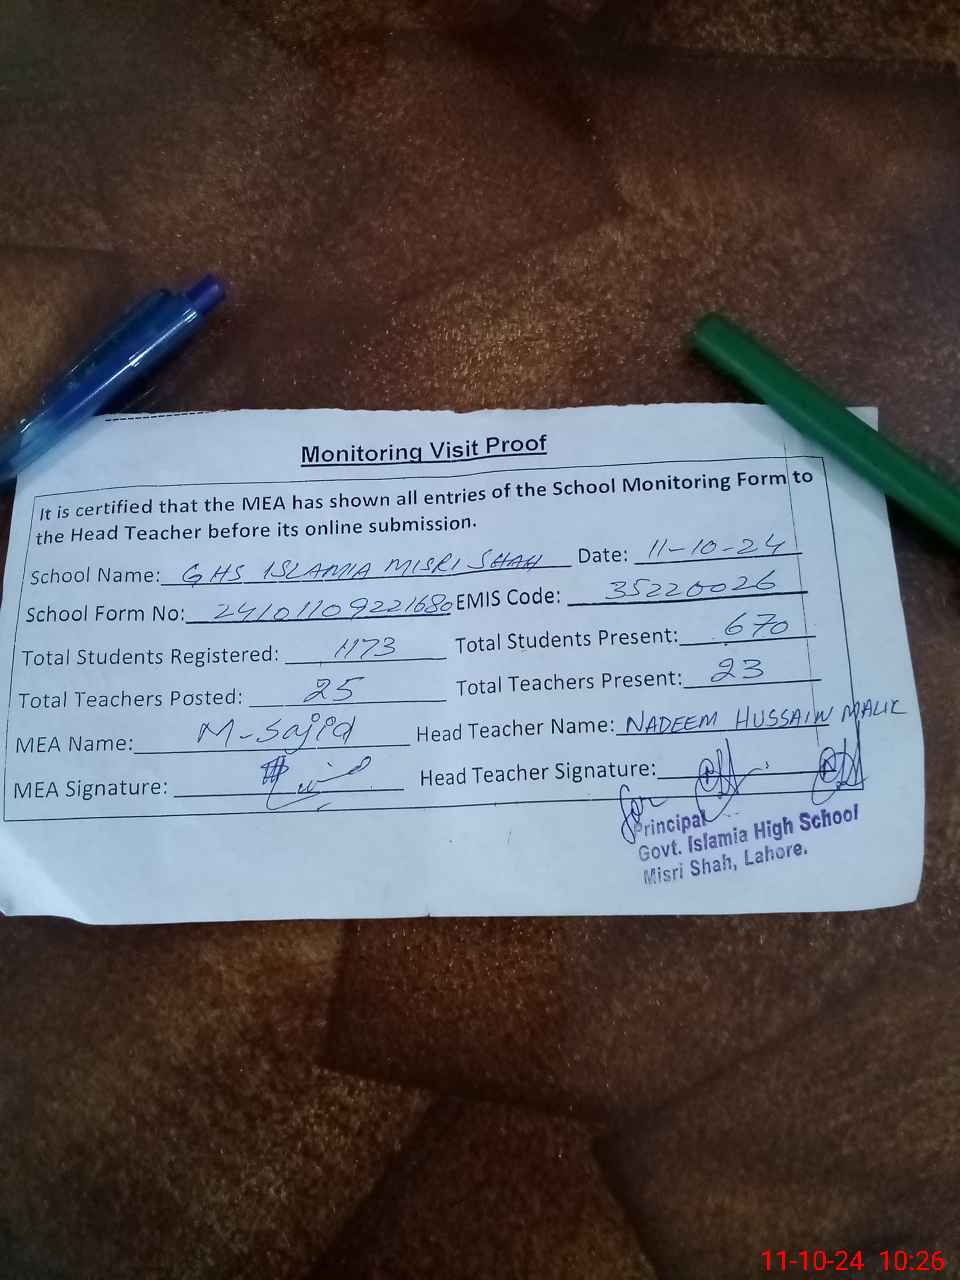 Monitoring Visit Proof
It is certified that the MEA has shown all entries of the School Monitoring Form to
the Head Teacher before its online submission.
School Name: GHS ISLAMIA MISRI SHAH Date: 11-10-24
School Form No: 24101109221680 EMIS Code: 35220026
Total Students Registered: 1173 Total Students Present: 670
Total Teachers Posted: 25 Total Teachers Present: 23
MEA Name: M-Sajid Head Teacher Name: NADEEM HUSSAIN MALIK
MEA Signature: Head Teacher Signature:
for
Principal
Govt. Islamia High School
Misri Shah, Lahore.
11-10-24 10:26